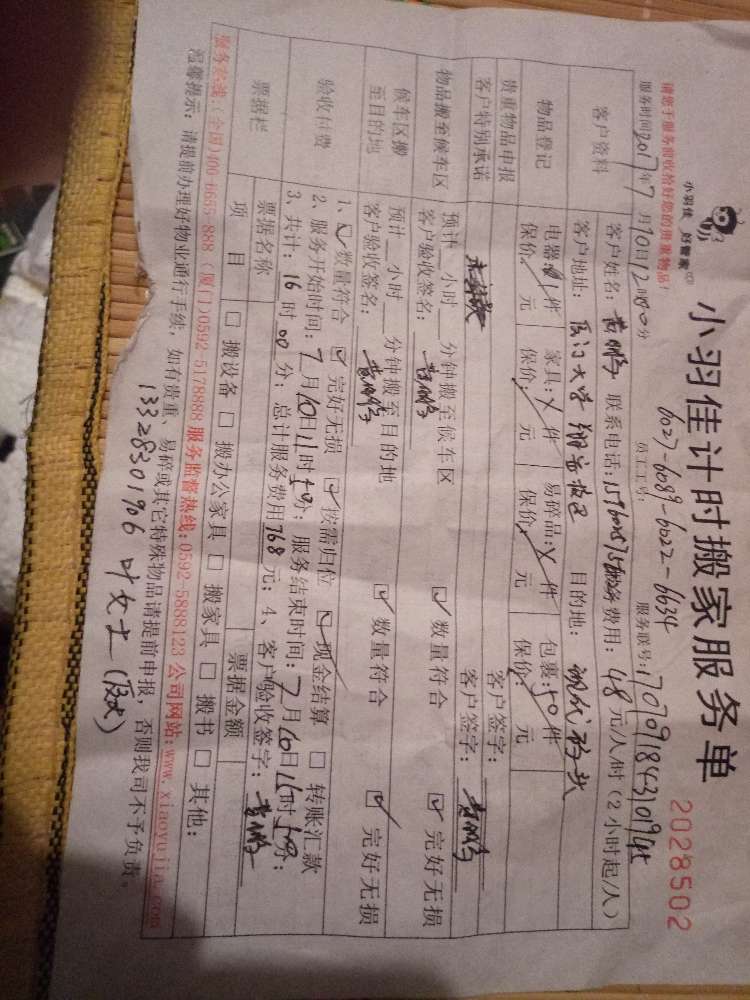 小羽佳 好管家
小羽佳计时搬家服务单
2028502
请您于服务前收拾好您的贵重物品!
员工工号: 6027-6089-6022-6634
服务联号:
服务时间2017年7月10日12时00分
客户资料
客户姓名: 联系电话: 服务费用: 48元/人/时(2小时起/人)
客户地址: 厦门大学翔安校区 目的地:
物品登记
电器: 1件 家具: 件 易碎品: 件 包裹: 50件
保价: 元 保价: 元 保价: 元 保价: 元
贵重物品申报
客户签字:
客户特别承诺
客户签字:
物品搬至候车区
预计 小时 分钟搬至候车区
客户验收签名: ☑ 数量符合 ☑ 完好无损
候车区搬至目的地
预计 小时 分钟搬至目的地
客户验收签名: ☑ 数量符合 ☑ 完好无损
验收付费
1、☑ 数量符合 ☑ 完好无损 ☑ 按需归位 ☑ 现金结算 □ 转账汇款
2、服务开始时间: 7月10日 时 分; 服务结束时间: 7月10日 时 分;
3、共计: 16时00分; 总计服务费用768元; 4、客户验收签字:
票据栏
票据名称 票据金额
项目 □ 搬设备 □ 搬办公家具 □ 搬家具 □ 搬书 □ 其他:
服务热线: (全国)400-6665-888 (厦门)0592-5178888 服务监督热线: 0592-5888123 公司网站: www.xiaoyujia.com
温馨提示: 请提前办理好物业通行手续, 如有贵重、易碎或其它特殊物品请提前申报, 否则我司不予负责。
13328301906 叶女士